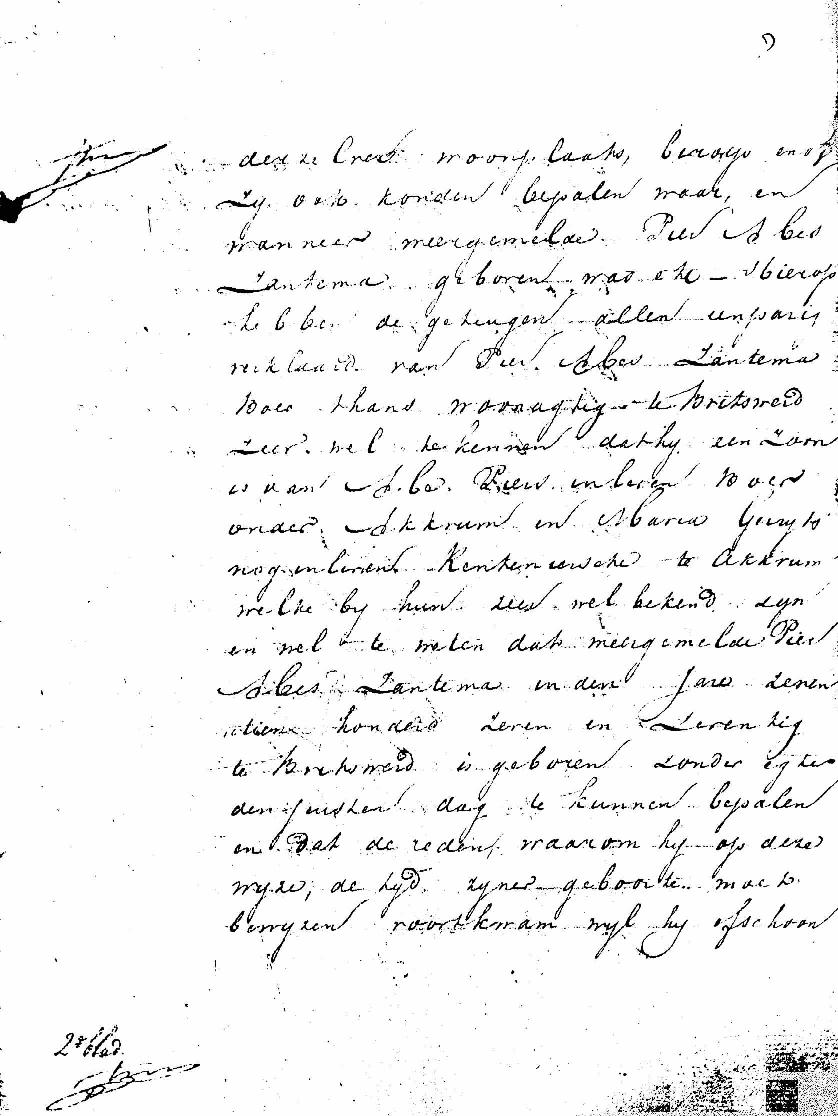 derzelver woonplaats, beroep en of
Zy ook konden bepalen waar, en
wanneer meergemelde Pier Abes
Zantema geboren was etc – Hierop
hebben de getuigen allen eenparig
verklaard van Pier Abes Zantema
Boer thans woonagtig te Britswerd
zeer wel te kennen dat hy een Zoon
is van Abe Piers in leven Boer
onder Akkrum en Maria Geerts
nog in leven Rentenierske te Akkrum
welke by hun zeer wel bekend zyn
en wel te weten dat meergemelde Pier
Abes Zantema in den Jare zeven
tien honderd zeven en Zeventig
te Britswerd is geboren zonder egter
den juisten dag te kunnen bepalen
en Dat de reden, waarom hy op deze
wyze, de tyd zyner geboorte moet
bewyzen voortkwam wyl hy ofschoon
2e blad